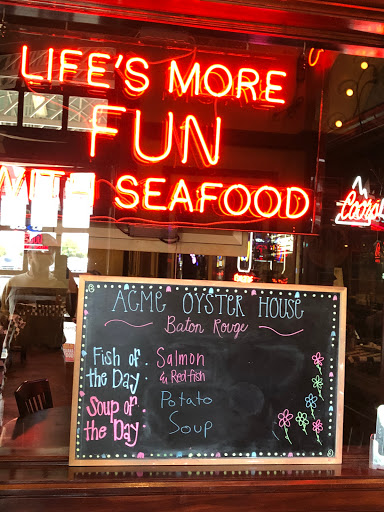 LIFE'S MORE
FUN
WITH SEAFOOD
ACME OYSTER HOUSE
Baton Rouge
Fish of the Day
Salmon
& Redfish
Soup of the Day
Potato
Soup